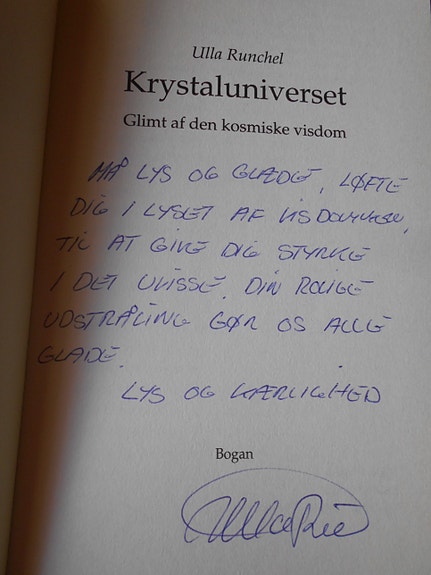 Ulla Runchel
Krystaluniverset
Glimt af den kosmiske visdom
MÅ LYS OG GLÆDE, LØFTE
DIG I LYSET AF VISDOMMEN,
TIL AT GIVE DIG STYRKE
I DET UVISSE. DIN ROLIGE
UDSTRÅLING GØR OS ALLE
GLADE.
LYS OG KÆRLIGHED
Bogan